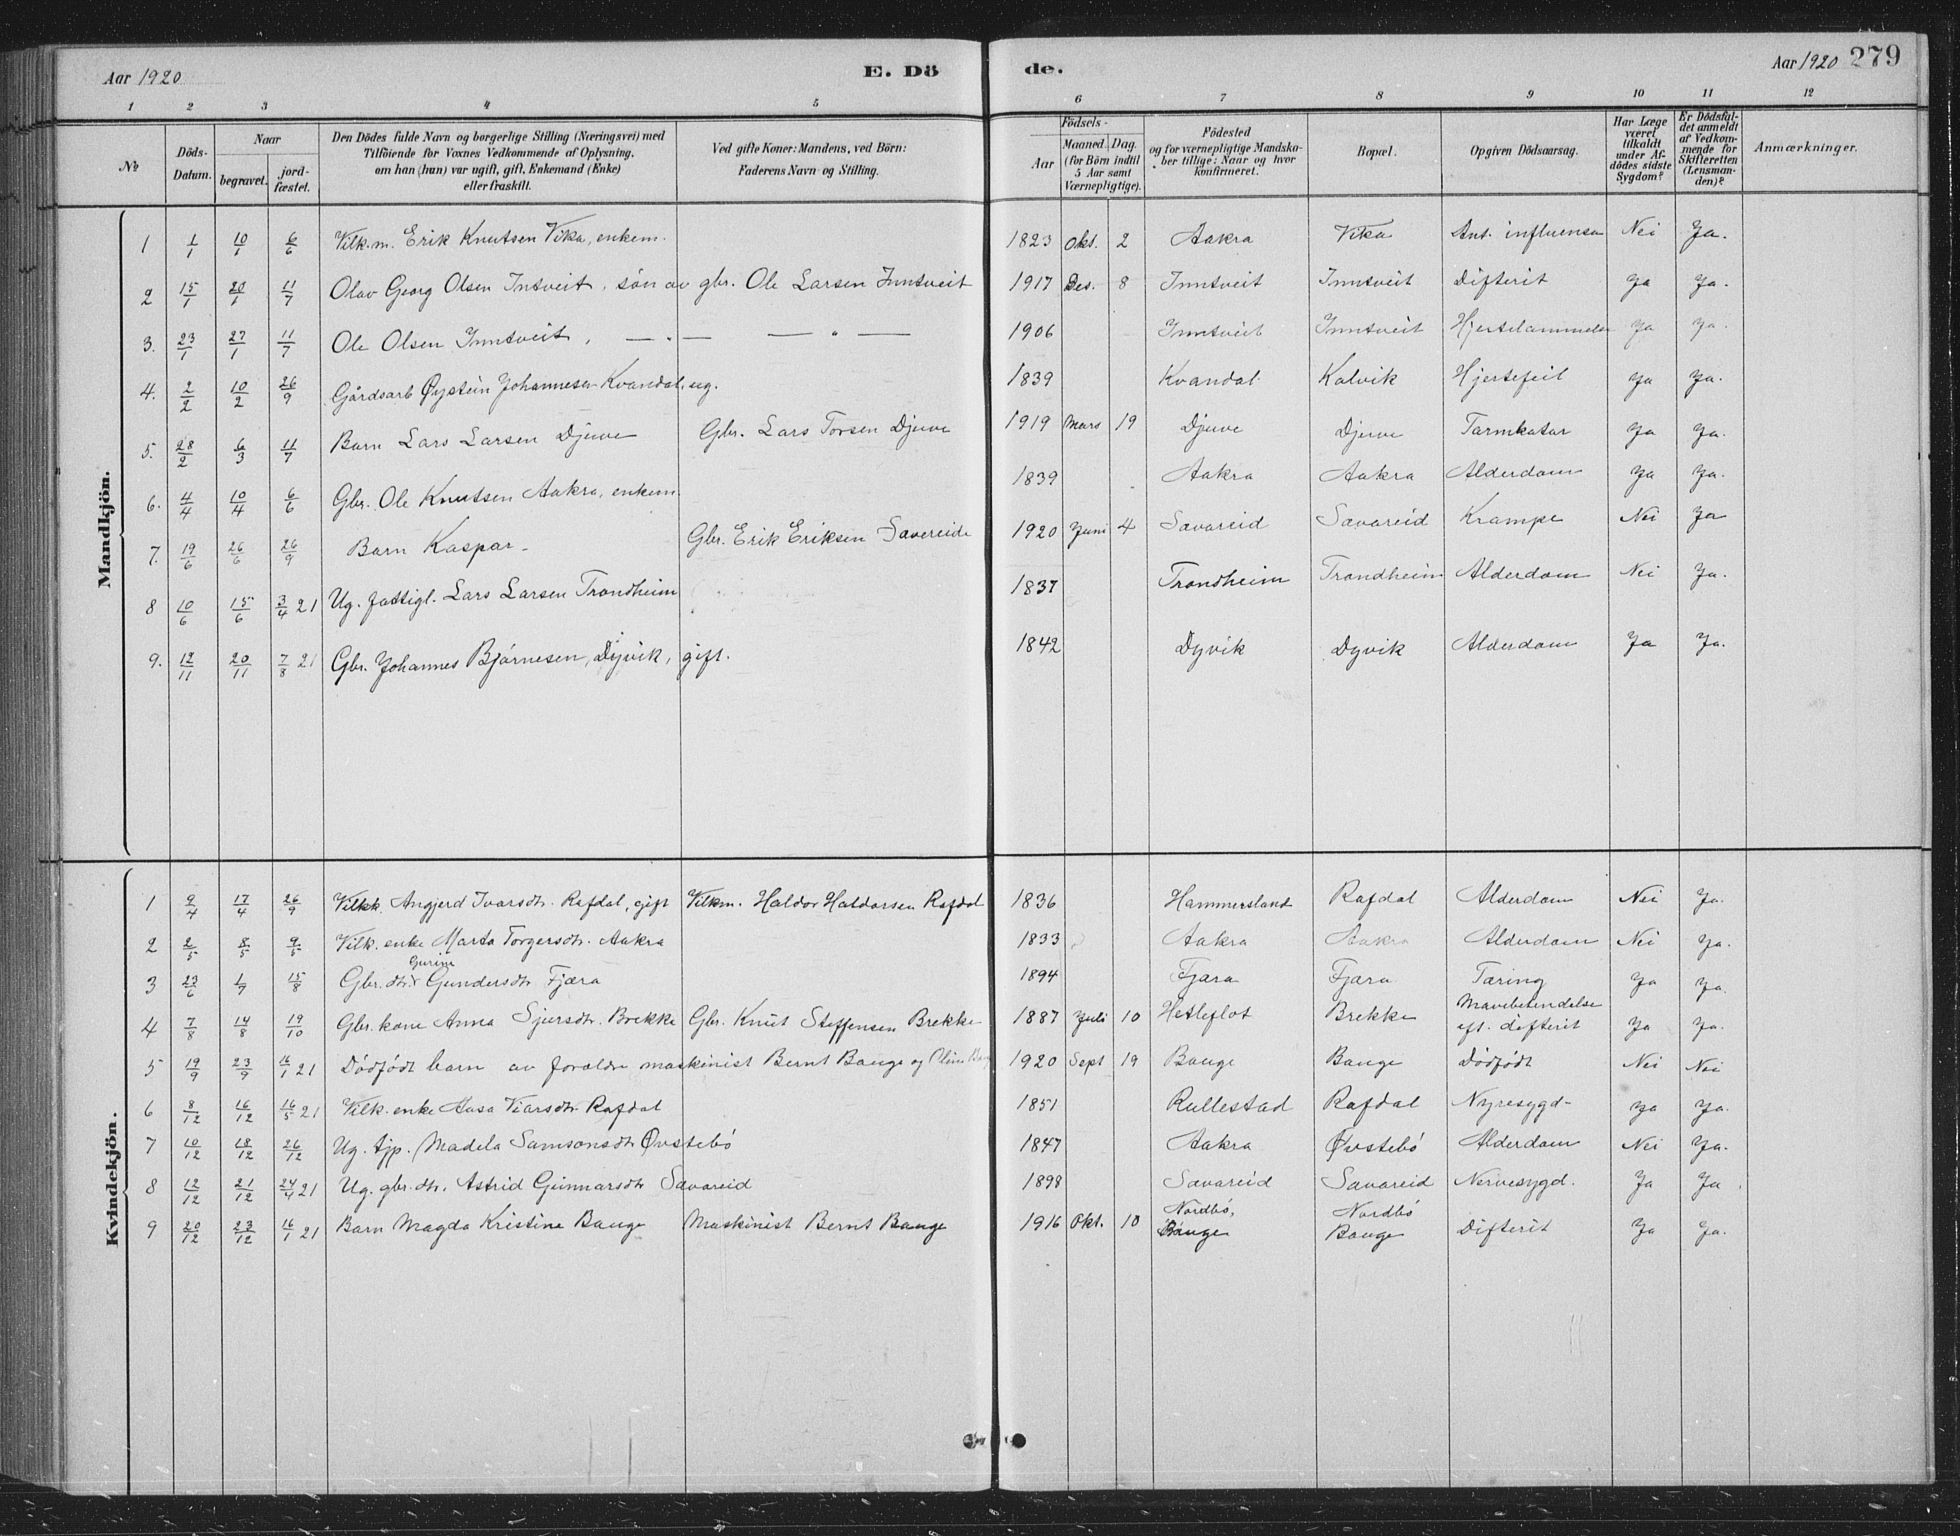 Aar 1920 E. Dö de. Aar 1920 279
1 2 3 4 5 6 7 8 9 10 11 12
No
Döds-Datum.
Naar
begravet.
jord-fæstet.
Den Dödes fulde Navn og borgerlige Stilling (Næringsvei) med
Tilföiende for Voxnes Vedkommende af Oplysning,
om han (hun) var ugift, gift, Enkemand (Enke)
eller fraskilt.
Ved gifte Koner: Mandens, ved Börn:
Faderens Navn og Stilling.
Födsels-
Aar
Maaned. Dag.
(for Börn indtil
5 Aar samt
Værnepligtige).
Födested
og for værnepligtige Mandska-
ber tillige: Naar og hvor
konfirmeret.
Bopæl.
Opgiven Dödsaarsag.
Har Læge
været
tilkaldt
under Af-
dödes sidste
Sygdom?
Er Dödsfal-
det anmeldt
af Vedkom-
mende for
Skifteretten
(Lensman-
den)?
Anmærkninger.
Mandkjön.
1 1/1 10/1 6/6 Vilk.m. Erik Knutsen Vika, enkem. 1823 Okt. 2 Aakra Vika Ant. influensa Nei Ja.
2 15/1 20/1 11/7 Olav Georg Olsen Intveit, sön av gbr. Ole Larsen Inntveit 1917 Des. 8 Inntveit Inntveit Difterit Ja Ja.
3. 23/1 27/1 11/7 Ole Olsen Inntveit, — " — — " — 1906 Inntveit Inntveit Hjertelammelse Ja Ja.
4. 2/2 10/2 26/9 Gårdsarb Øystein Johannesen Kvandal, ug. 1839 Kvandal Kalvik Hjertefeil Ja Ja.
5. 28/2 6/3 11/7 Barn Lars Larsen Djuve Gbr. Lars Torsen Djuve 1919 Mars 19 Djuve Djuve Tarmkatar Ja Ja.
6. 4/4 10/4 6/6 Gbr. Ole Knutsen Aakra, enkem. 1839 Aakra Aakra Alderdom Ja Ja.
7. 19/6 26/6 26/9 Barn Kaspar Gbr. Erik Eriksen Savereide 1920 Juni 4 Savareid Savareid Krampe Nei Ja
8 10/6 15/6 3/4 21 Ug. fattigl. Lars Larsen Trondheim 1837 Trondheim Trondheim Alderdom Nei Ja.
9. 12/11 20/11 7/8 21 Gbr. Johannes Bjørnesen, Dyvik, gift. 1842 Dyvik Dyvik Alderdom Ja Ja.
Kvindekjön.
1 9/4 17/4 26/9 Vilkk. Angjerd Ivarsdt. Rafdal, gift Vilkm. Haldor Haldorsen Rafdal 1836 Hammersland Rafdal Alderdom Nei Ja.
2 2/5 8/5 9/5 Vilk. enke Marta Torgersdt. Aakra 1833 Aakra Aakra Alderdom Nei Ja.
Gurine
3 23/6 1/7 15/8 Gbr. dt. Gundersdt Fjæra 1894 Fjæra Fjæra Tæring Ja Ja.
4 7/8 14/8 19/10 Gbr. kone Anna Sjursdt. Brekke Gbr. Knut Steffensen Brekke 1887 Juli 10 Hetleflot Brekke Mavebetendelse eft. difterit Ja Ja.
5 19/9 23/9 16/1 21 Dödfödt barn av foreldre maskinist Bernt Bauge og 1920 Sept 19 Bauge Bauge Dödfödt Nei Nei
6 8/12 16/12 16/5 21 Vilk. enke Aasa Rafdal 1851 Rullestad Rafdal Nyresygd. Ja Ja.
7 10/12 18/12 26/12 Ug. tjp. Madela Samsonsdt Øvstebö 1847 Aakra Øvstebö Alderdom Nei Ja.
8 12/12 21/12 24/4 21 Ug. gbr. dt. Astrid Gunnarsdt Savareid 1898 Savareid Savareid Nervesygd. Ja Ja
9 20/12 23/12 16/1 21 Barn Magda Kristine Bauge Maskinist Bernt Bauge 1916 Okt. 10 Nordbö, Bauge Nordbö Bauge Difterit Ja Ja.